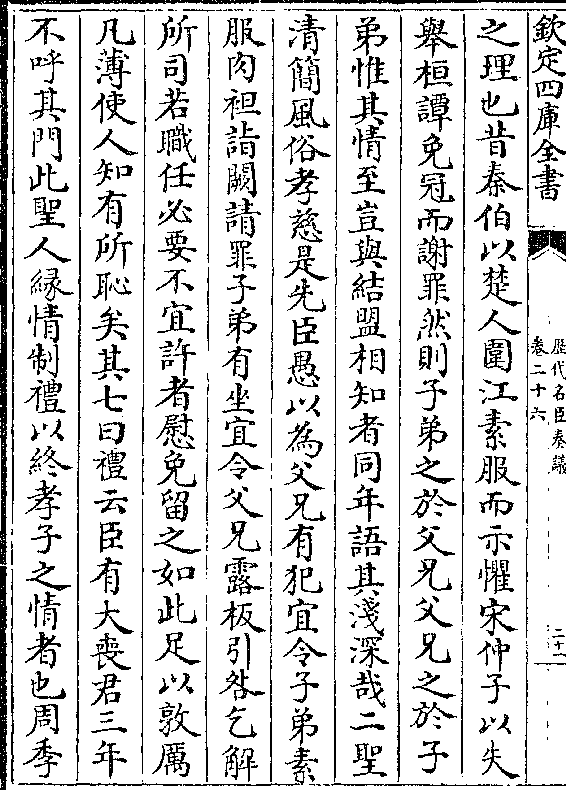 欽定四庫全書
歷代名臣奏議
卷二十六
二十一
之理也昔秦伯以楚人圍江素服而示懼宋仲子以失
舉桓譚免冠而謝罪然則子弟之於父兄父兄之於子
弟惟其情至豈與結盟相知者同年語其淺深哉二聖
清簡風俗孝慈是先臣愚以為父兄有犯宜令子弟素
服肉袒詣闕請罪子弟有坐宜令父兄露板引咎乞解
所司若職任必要不宜許者慰免留之如此足以敦厲
凡薄使人知有所恥矣其七曰禮云臣有大喪君三年
不呼其門此聖人縁情制禮以終孝子之情者也周季